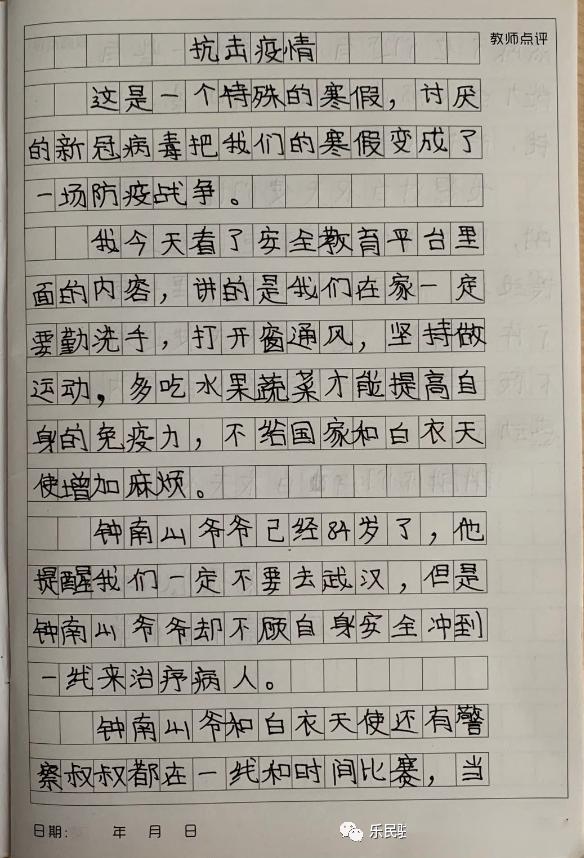 教师点评
抗击疫情
这是一个特殊的寒假，讨厌
的新冠病毒把我们的寒假变成了
一场防疫战争。
我今天看了安全教育平台里
面的内容，讲的是我们在家一定
要勤洗手，打开窗通风，坚持做
运动，多吃水果蔬菜才能提高自
身的免疫力，不给国家和白衣天
使增加麻烦。
钟南山爷爷已经84岁了，他
提醒我们一定不要去武汉，但是
钟南山爷爷却不顾自身安全冲到
一线来治疗病人。
钟南山爷和白衣天使还有警
察叔叔都在一线和时间比赛，当
日期： 年 月 日
乐民